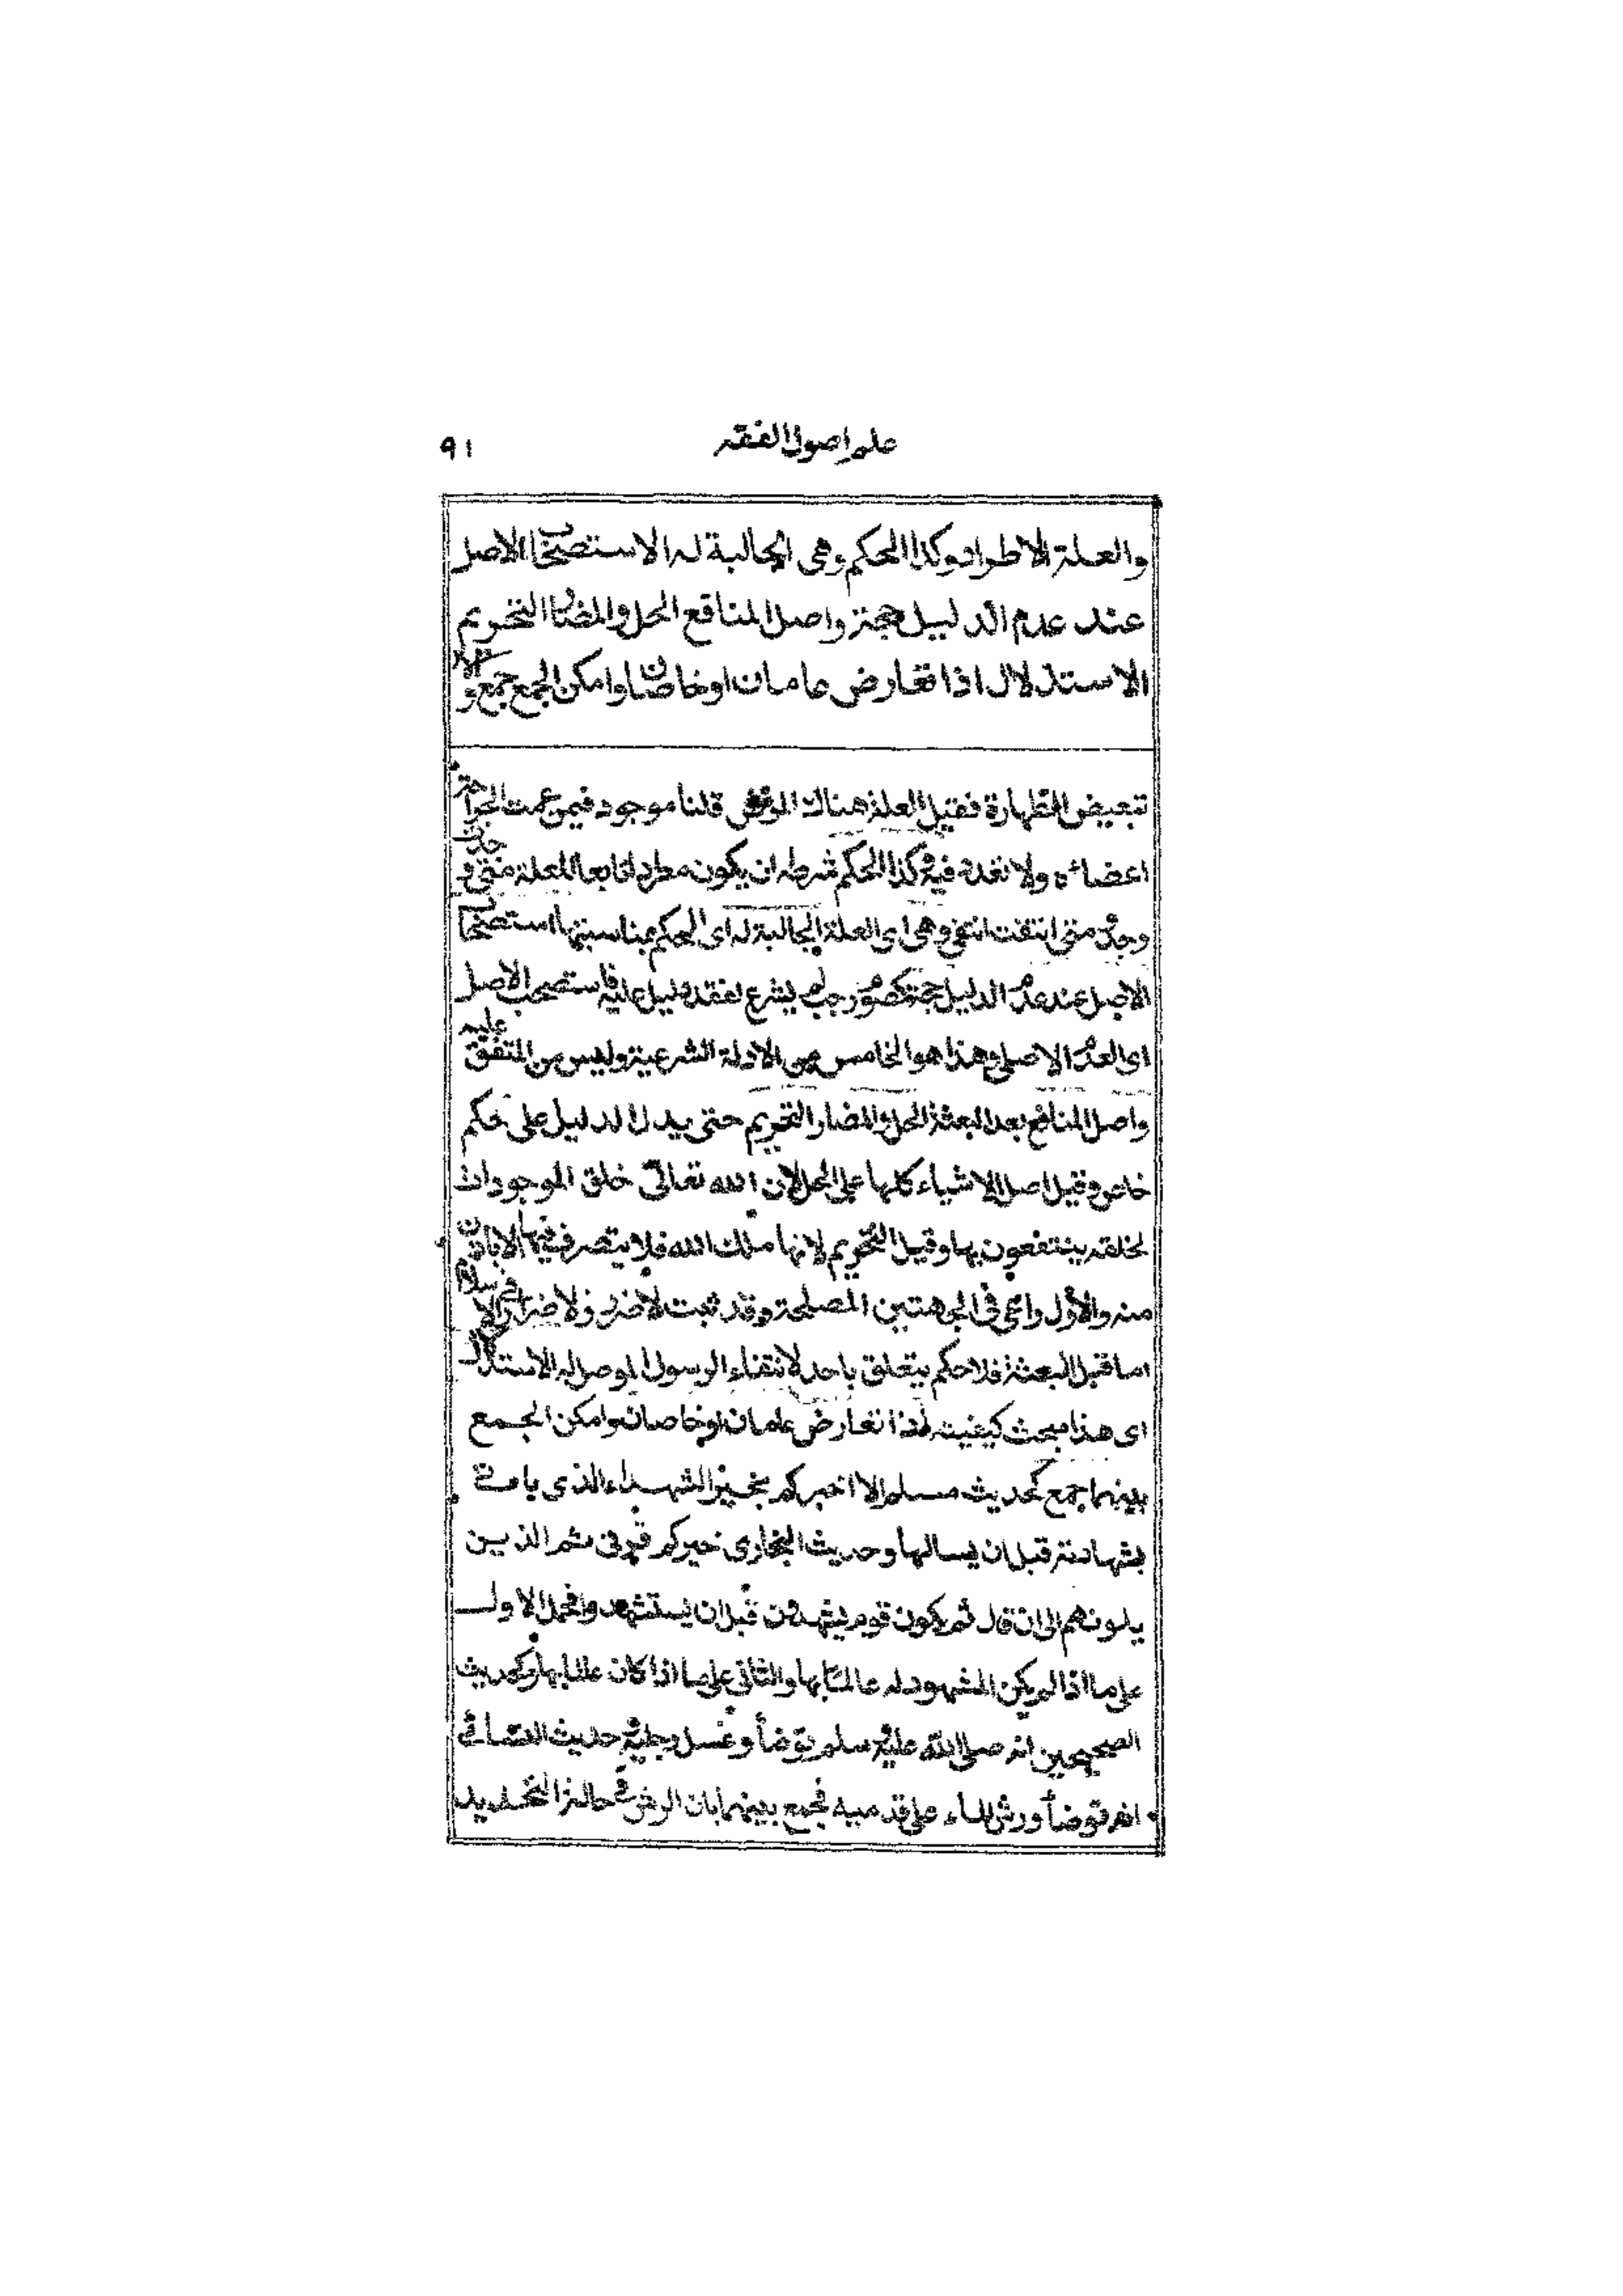 علم اصول الفقه
٩١
والعلة الاطراد وكذا الحكم وهى الجالبة له الاستصحاب الاصل
عند عدم الدليل حجة واصل المنافع الحل والمضار التحريم
الاستدلال اذا تعارض عامان او خاصان وامكن الجمع جمع والا
تبعيض الطهارة فقيل العلة هناك قلنا موجود فيمن عمت الجراحة
اعضاءه ولا تعدد فيه وكذا الحكم شرطه ان يكون مطردا تابعا للعلة متى
وجدت وجد ومتى انتفت انتفى وهى اى العلة الجالبة له اى للحكم بمناسبتها استصحاب
الاصل عند عدم الدليل حجة كصوم رجب لم يشرع لفقد دليل عليه فاستصحب الاصل
اى العدم الاصلى وهذا هو الخامس من الادلة الشرعية وليس من المتفق عليه
واصل المنافع بعد البعثة الحل والمضار التحريم حتى يدل الدليل على حكم
خاص وقيل اصل الاشياء كلها على الحل لان الله تعالى خلق الموجودات
لخلقه ينتفعون بها وقيل التحريم لانها ملك الله فلا يتصرف فيها الا باذن
منه والاول راعى فى الجهتين المصلحة وقد ثبت لا ضرر ولا ضرار فى الاسلام
اما قبل البعثة فلا حكم يتعلق باحد لانتفاء الرسول الموصل له الاستدلال
اى هذا مبحث كيفيته اذا تعارض عامان او خاصان وامكن الجمع
بينهما جمع كحديث مسلم الا اخبركم بخير الشهداء الذى ياتى
بشهادته قبل ان يسالها وحديث البخارى خيركم قرنى ثم الذين
يلونهم الى ان قال ثم يكون قوم يشهدون قبل ان يستشهدوا فحمل الاول
على ما اذا لم يكن المشهود له عالما بها والثانى على ما اذا كان عالما بها وكحديث
الصحيحين انه صلى الله عليه وسلم توضأ وغسل رجليه وحديث النسائى
انه توضأ ورش الماء على قدميه فجمع بينهما بان الرش فى حالة التجديد